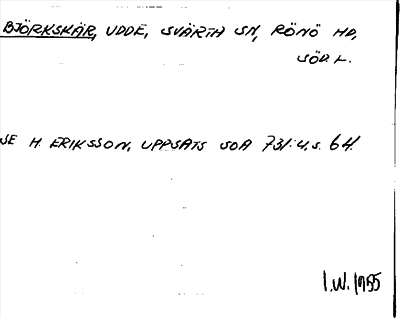 BJÖRKSKÄR, UDDE, SVÄRTA SN, RÖNÖ HD,
SÖD. L.
SE H. ERIKSSON, UPPSATS SOA 731:4, S. 64.
I.W. 1955